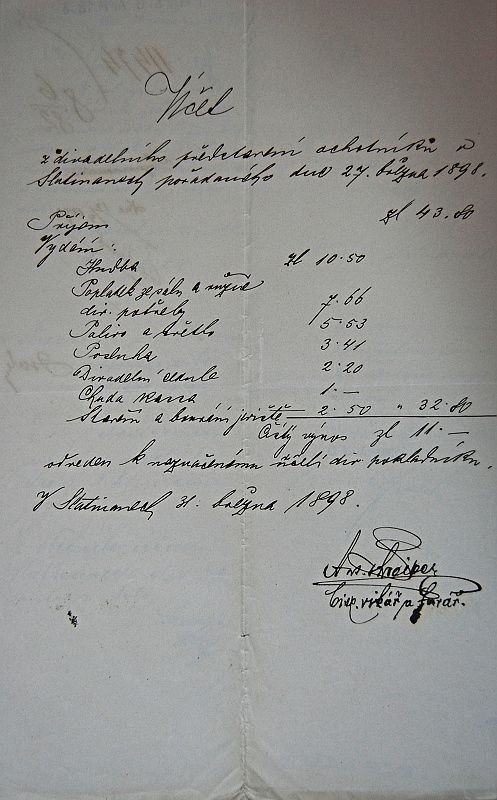 Účet
z divadelního představení ochotníků v
Slatinanech pořádaného dne 27. března 1898.
Příjem zl 43.80
Vydání:
Hudba zl 10.50
Poplatek ze sálu a
div. potřeby 7.66
Palivo a světlo 5.53
Posluha 3.41
Divadelní cedule 2.20
Chudá kassa 1.—
Stavění a bourání jeviště 2.50 " 32.80
Čistý výnos zl 11.—
odveden k naznačenému účeli div. pokladníku.
V Slatinanech 31. března 1898.
Ant.
bisk. vikář a farář.